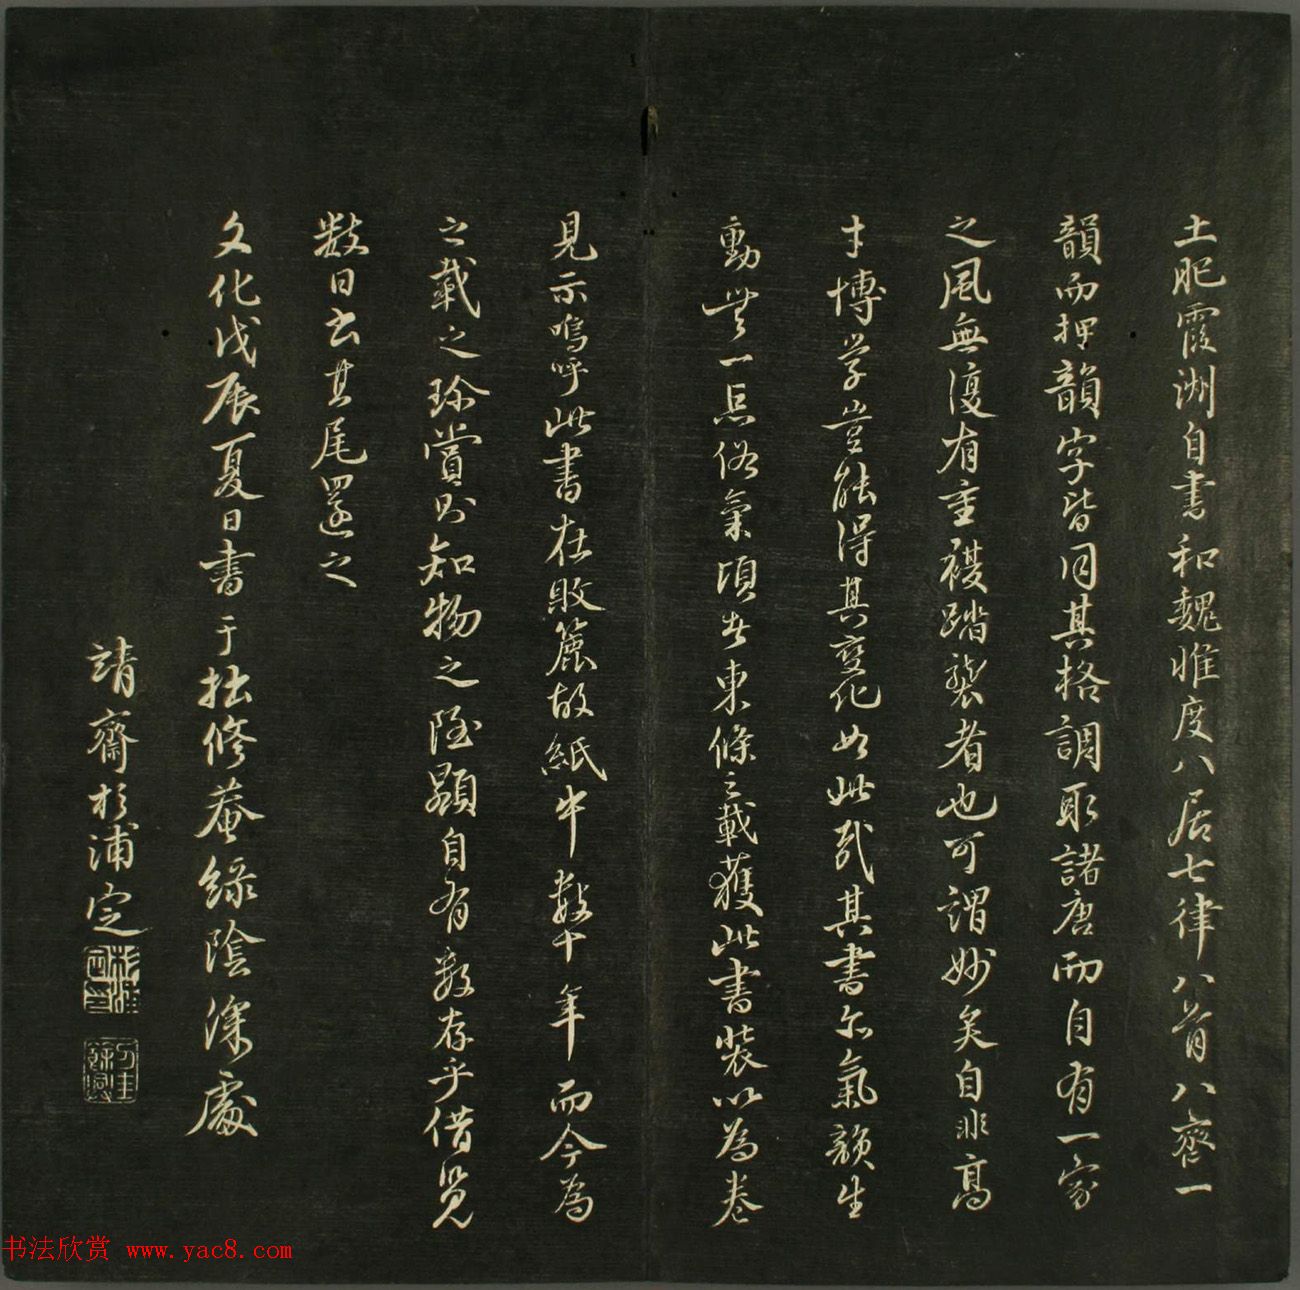 土肥霞洲自書和魏惟度八居七律八首八齊一
韻而押韻字皆同其格調取諸唐而自有一家
之風無復有重複踏襲者也可謂妙矣自非高
才博学豈能得其變化如此哉其書亦氣韻生
動無一点俗氣頃者東條之載獲此書裝以為卷
見示嗚呼此書在敗簏故紙中數十年而今為
之載之珎賞則知物之隱顯自有數存乎借覽
數日書其尾還之
文化戊辰夏日書于拙修菴綠陰深處
靖齋杉浦定
书法欣赏 www.yac8.com